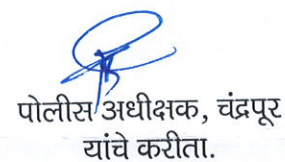 पोलीस अधीक्षक, चंद्रपूर
यांचे करीता.